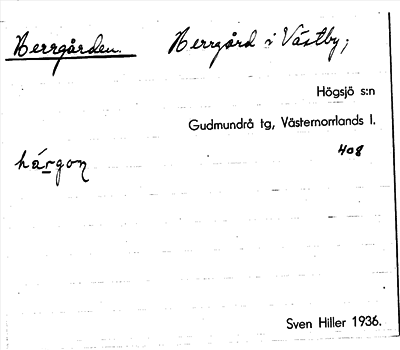 Herrgården. Herrgård i Västby;
Högsjö s:n
Gudmundrå tg, Västernorrlands l.
408
hárgon
Sven Hiller 1936.